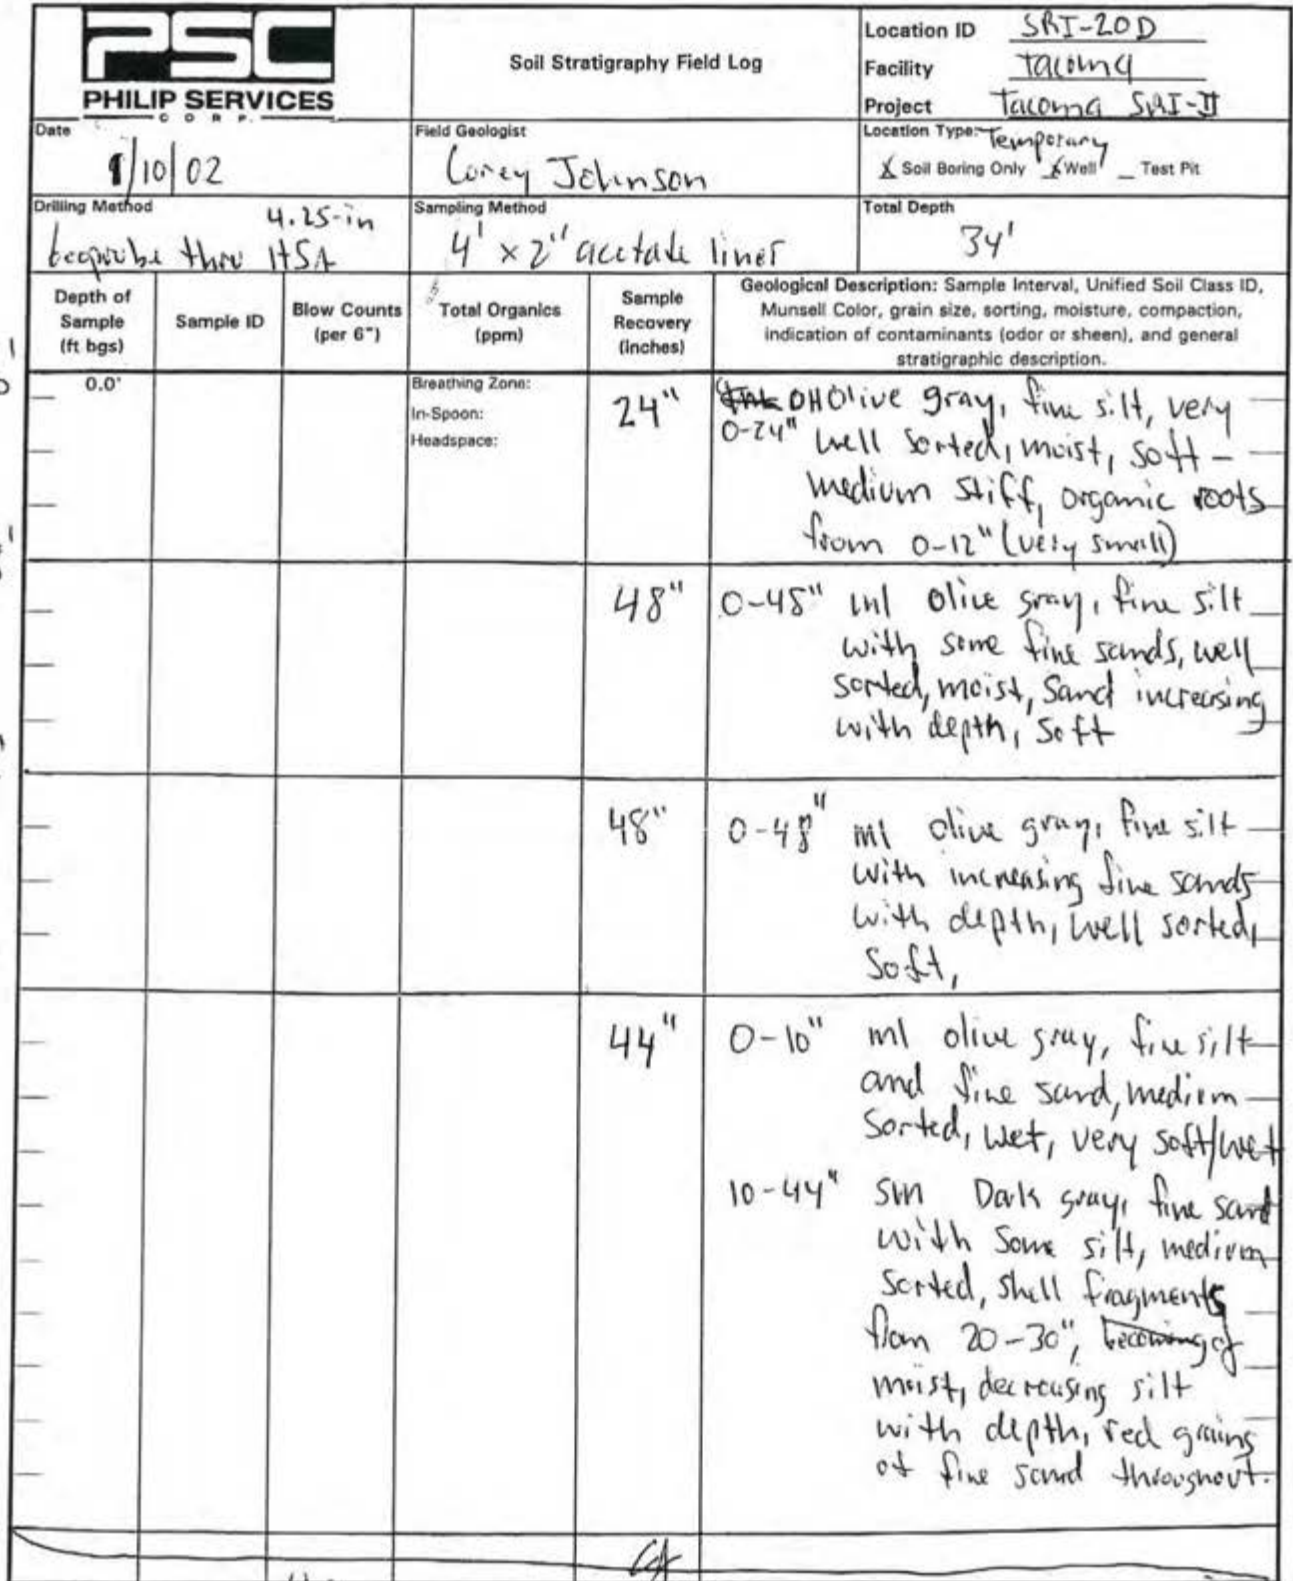 PSC
PHILIP SERVICES
CORP.
Soil Stratigraphy Field Log
Location ID SRI-20D
Facility Tacoma
Project Tacoma SRI-II
Date
/10/02
Field Geologist
Corey Johnson
Location Type: Temporary
X Soil Boring Only X Well _ Test Pit
Drilling Method 4.25-in
Geoprobe thru HSA
Sampling Method
4' x 2" acetate liner
Total Depth
34'
Depth of Sample (ft bgs)
Sample ID
Blow Counts (per 6")
Total Organics (ppm)
Sample Recovery (inches)
Geological Description: Sample Interval, Unified Soil Class ID,
Munsell Color, grain size, sorting, moisture, compaction,
indication of contaminants (odor or sheen), and general
stratigraphic description.
0.0'
Breathing Zone:
In-Spoon:
Headspace:
24"
OH Olive gray, fine silt, very
0-24" well sorted, moist, soft -
medium stiff, organic roots
from 0-12" (very small)
48"
0-48" ml olive gray, fine silt
with some fine sands, well
sorted, moist, sand increasing
with depth, soft
48"
0-48" ml olive gray, fine silt
with increasing fine sands
with depth, well sorted,
soft,
44"
0-10" ml olive gray, fine silt
and fine sand, medium
sorted, wet, very soft/wet
10-44" sm Dark gray, fine sand
with some silt, medium
sorted, shell fragments
from 20-30", becoming
moist, decreasing silt
with depth, red grains
of fine sand throughout.
CJ